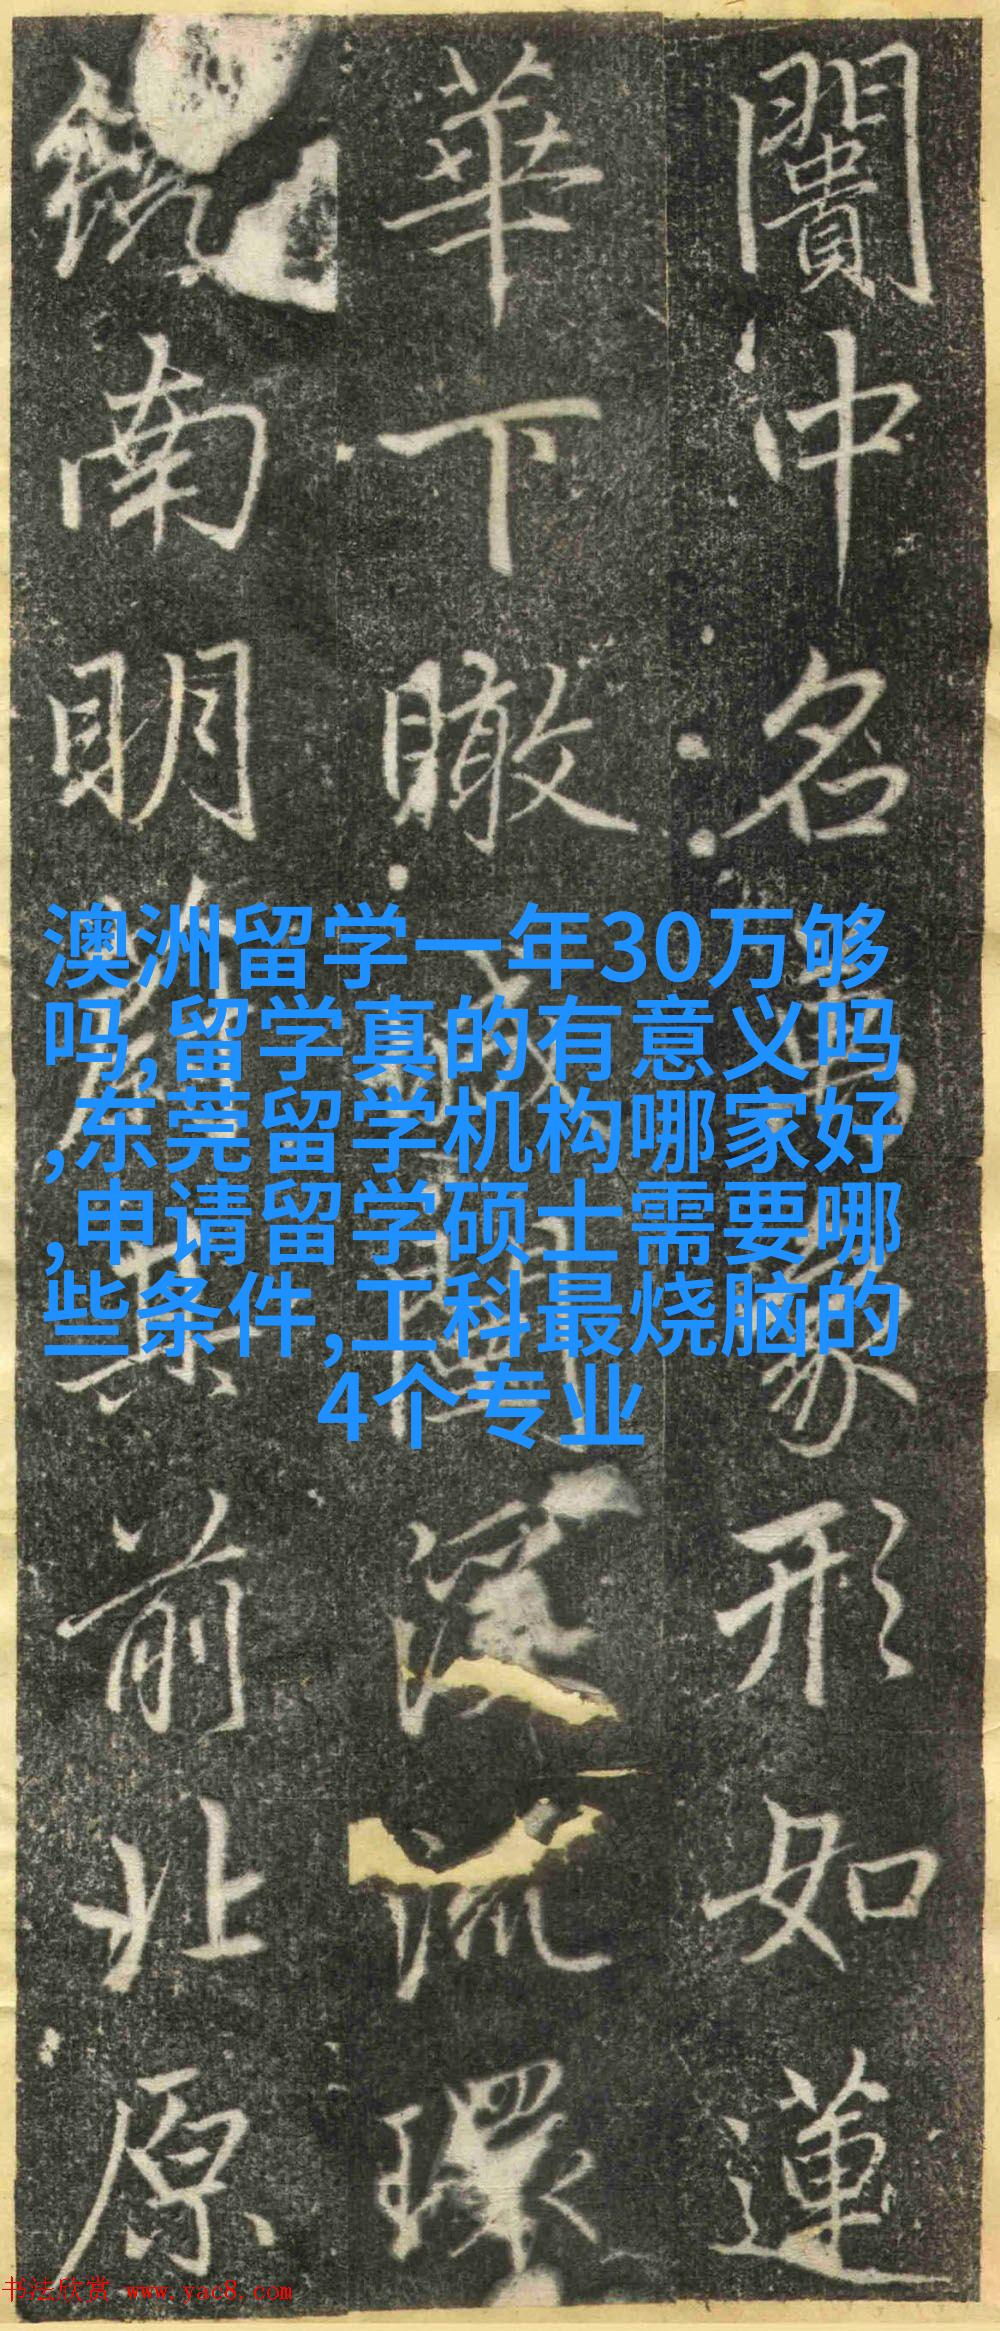 闠中名
形如蓮
華下瞰
環
南明
其前北原
澳洲留学一年30万够
吗,留学真的有意义吗
,东莞留学机构哪家好
,申请留学硕士需要哪
些条件,工科最烧脑的
4个专业
书法欣赏 www.yac8.com